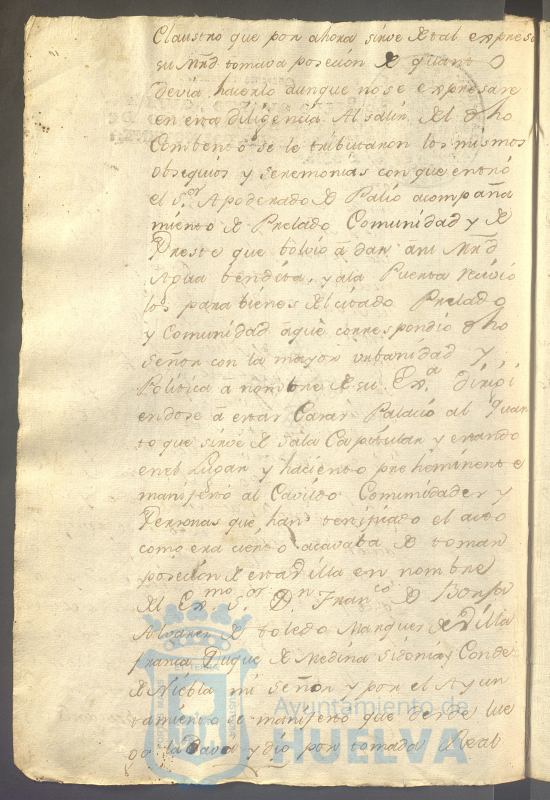 Claustro que por ahora sirve de tal expreso
su Mrd tomava posecion de quanto
devia hacerlo aunque no se expresare
en esta diligencia. Al salir del dho
Combento se le tributaron los mismos
obsequios y seremonias con que entró
el Sor Apoderado de Palio acompaña
miento de Prelado Comunidad y de
Preste que bolvio à dar asu Mrd
Agua bendita, y ala Puerta recivio
los parabienes del citado Prelado
y Comunidad aque correspondio dho
Señor con la mayor urbanidad y
Politica à nombre de su Exa dirigi
endose à estas Casas Palacio al quar
to que sirve de Sala Capitular y estando
en el Lugar y haciento preheminente
manifestó al Cavildo Comunidades y
Personas que han tenificado el acto
como era cierto acavaba de tomar
posecion de esta Villa en nombre
del Exmo Sor Dn Franco de Borja
Alvarez de Toledo Marques de Villa
franca Duque de Medina Sidonia Conde
de Niebla mi Señor y por el Ayun
tamiento se manifestó que desde lue
go la Dava y dio por tomada Real
Ayuntamiento de
HUELVA